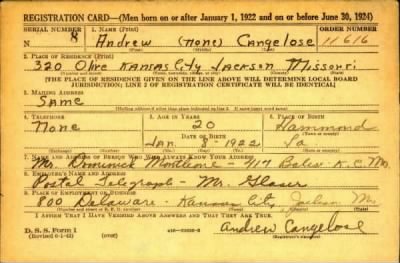 REGISTRATION CARD—(Men born on or after January 1, 1922 and on or before June 30, 1924)
SERIAL NUMBER 1. NAME (Print) ORDER NUMBER
N 8 Andrew (None) Cangelose 11616
2. PLACE OF RESIDENCE (Print)
320 Olive KANSAS City JACKSON Missouri
(Number and street) (Town, township, village, or city) (County) (State)
[THE PLACE OF RESIDENCE GIVEN ON THE LINE ABOVE WILL DETERMINE LOCAL BOARD
JURISDICTION; LINE 2 OF REGISTRATION CERTIFICATE WILL BE IDENTICAL]
3. MAILING ADDRESS
Same
(Mailing address if other than place indicated on line 2. If same insert word same)
4. TELEPHONE 5. AGE IN YEARS 6. PLACE OF BIRTH
None 20 Hammond
DATE OF BIRTH
Jan. 8-1922 La
7. NAME AND ADDRESS OF PERSON WHO WILL ALWAYS KNOW YOUR ADDRESS
Mr. Dominick 917 K.C. Mo.
8. EMPLOYER'S NAME AND ADDRESS
Postal Telegraph - Mr. Glaser
9. PLACE OF EMPLOYMENT OR BUSINESS
800 Delaware - Kansas City Jackson Mo.
I AFFIRM THAT I HAVE VERIFIED ABOVE ANSWERS AND THAT THEY ARE TRUE.
D. S. S. Form 1
(Revised 6-1-42) (over) Andrew Cangelose